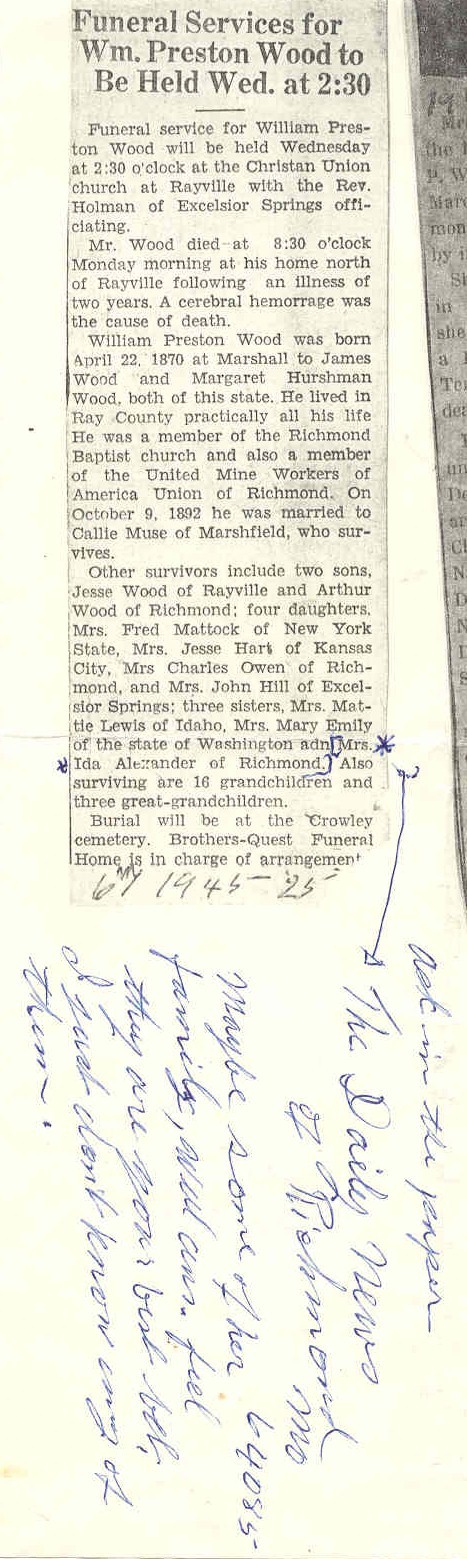 Funeral Services for
Wm. Preston Wood to
Be Held Wed. at 2:30
Funeral service for William Pres-
ton Wood will be held Wednesday
at 2:30 o'clock at the Christan Union
church at Rayville with the Rev.
Holman of Excelsior Springs offi-
ciating.
Mr. Wood died at 8:30 o'clock
Monday morning at his home north
of Rayville following an illness of
two years. A cerebral hemorrage was
the cause of death.
William Preston Wood was born
April 22, 1870 at Marshall to James
Wood and Margaret Hurshman
Wood, both of this state. He lived in
Ray County practically all his life
He was a member of the Richmond
Baptist church and also a member
of the United Mine Workers of
America Union of Richmond. On
October 9, 1892 he was married to
Callie Muse of Marshfield, who sur-
vives.
Other survivors include two sons,
Jesse Wood of Rayville and Arthur
Wood of Richmond; four daughters,
Mrs. Fred Mattock of New York
State, Mrs. Jesse Hart of Kansas
City, Mrs Charles Owen of Rich-
mond, and Mrs. John Hill of Excel-
sior Springs; three sisters, Mrs. Mat-
tie Lewis of Idaho, Mrs. Mary Emily
of the state of Washington adn [Mrs. *
* Ida Alexander of Richmond.] Also
surviving are 16 grandchildren and
three great-grandchildren.
Burial will be at the Crowley
cemetery. Brothers-Quest Funeral
Home is in charge of arrangement
1945
ask in the paper
The Daily News
of Richmond Mo
64085
Maybe some of her
family, will ans. feel
they are your best bet,
I just don't know any of
them.